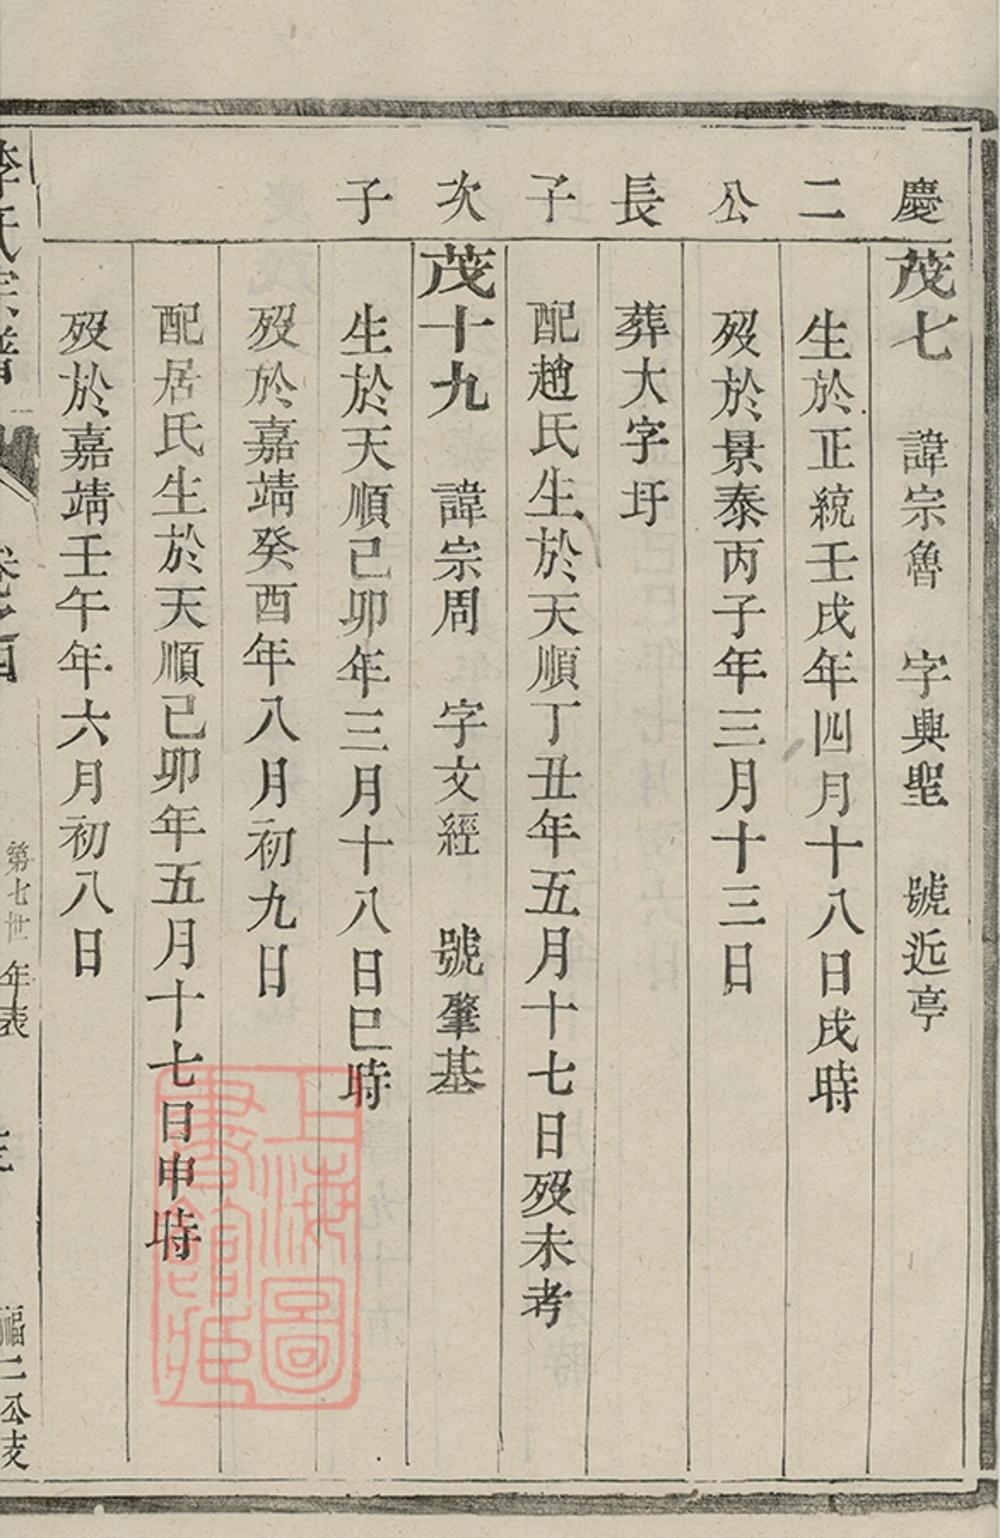 慶二公長子次子
茂七 諱宗魯 字興聖 號近亭
生於正統壬戌年四月十八日戌時
歿於景泰丙子年三月十三日
葬大字圩
配趙氏生於天順丁丑年五月十七日歿未考
茂十九 諱宗周 字文經 號肇基
生於天順己卯年三月十八日巳時
歿於嘉靖癸酉年八月初九日
配居氏生於天順己卯年五月十七日申時
歿於嘉靖壬午年六月初八日
李氏宗譜 卷之四 第七世 年表 福二公支
上海圖書館藏